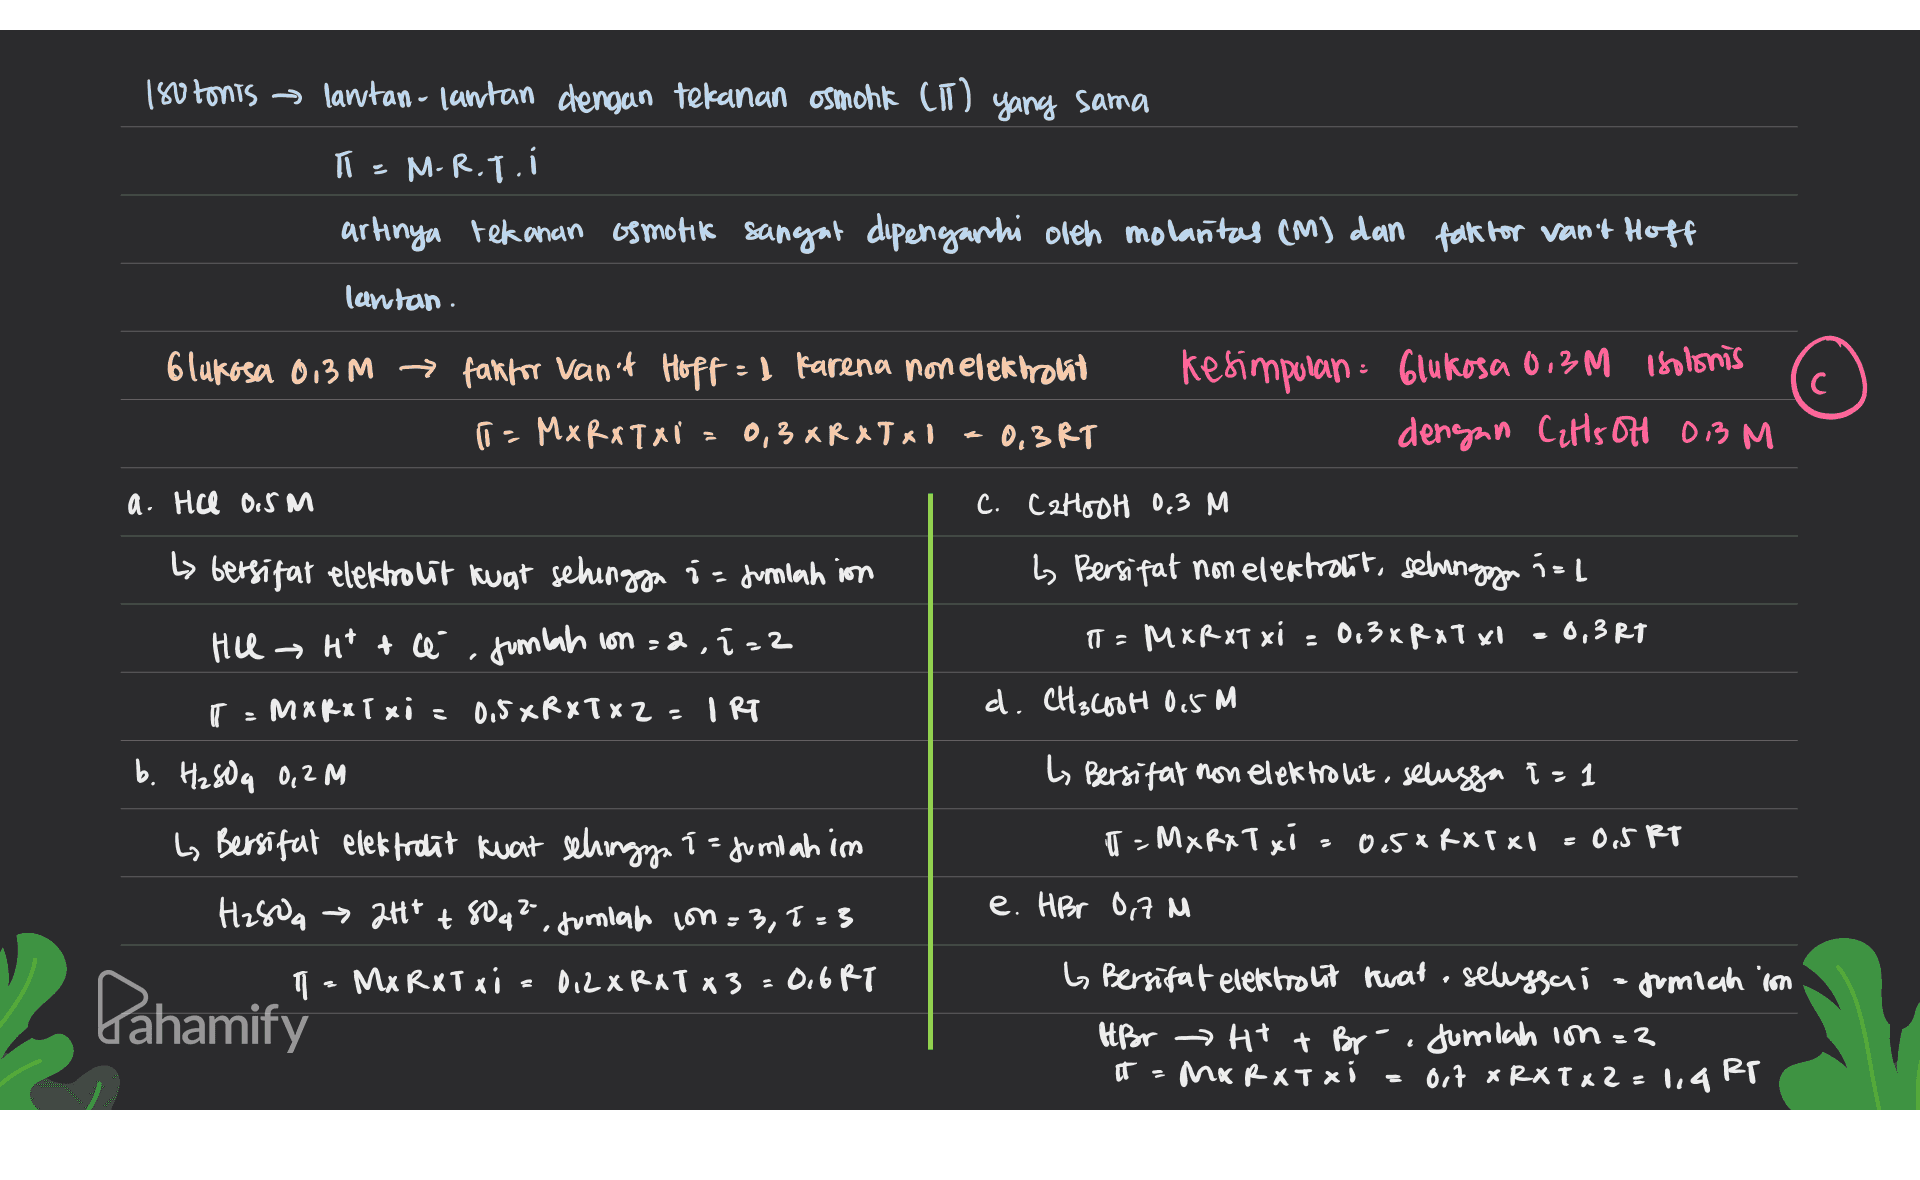 Isotonis → larutan-larutan dengan tekanan osmotik (π) yang sama
π = M.R.T.i
artinya tekanan osmotik sangat dipengaruhi oleh molaritas (M) dan faktor van't Hoff
larutan.
Glukosa 0,3 M → faktor Van't Hoff = 1 karena nonelektrolit
π = M×R×T×i = 0,3×R×T×1 = 0,3 RT
Kesimpulan = Glukosa 0,3 M Isotonis
dengan C₂H₅OH 0,3 M
C
a. HCl 0,5 M
↳ bersifat elektrolit kuat sehingga i = jumlah ion
HCl → H⁺ + Cl⁻, jumlah ion = 2, i = 2
π = M×R×T×i = 0,5×R×T×2 = 1 RT
b. H₂SO₄ 0,2 M
↳ Bersifat elektrolit kuat sehingga i = jumlah ion
H₂SO₄ → 2H⁺ + SO₄²⁻, jumlah ion = 3, i = 3
π = M×R×T×i = 0,2×R×T×3 = 0,6 RT
C. C₂H₅OH 0,3 M
↳ Bersifat nonelektrolit, sehingga i = 1
π = M×R×T×i = 0,3×R×T×1 = 0,3 RT
d. CH₃COOH 0,5 M
↳ Bersifat nonelektrolit, sehingga i = 1
π = M×R×T×i = 0,5×R×T×1 = 0,5 RT
e. HBr 0,7 M
↳ Bersifat elektrolit kuat, sehingga i = jumlah ion
HBr → H⁺ + Br⁻, jumlah ion = 2
π = M×R×T×i = 0,7×R×T×2 = 1,4 RT
Pahamify